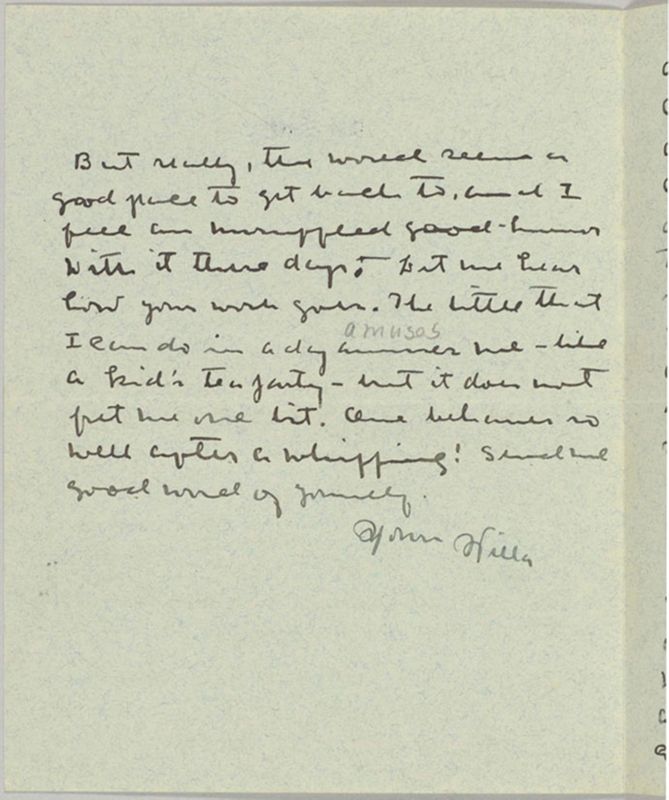 But really, the world seems a
good place to get back to, and I
feel an unruffled good-humor
with it these days. Let me hear
how your work goes. The little that
amuses
I can do in a day amuses me - like
a kid's tea party - but it does not
fret me one bit. One behaves so
well after a whipping! Send me
good word of yourself.
Yours Willa